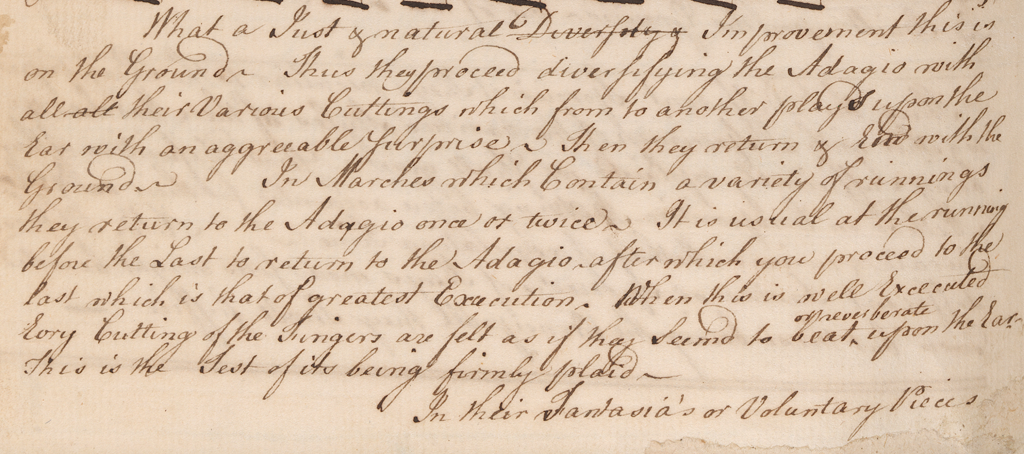 What a Just & natural Diversity & Improvement this is
on the Ground. Thus they proceed diversifying the Adagio with
all alt their Various Cuttings which from to another plays upon the
Ear with an aggreeable surprise. Then they return & End with the
Ground. In Marches which Contain a variety of runnings
they return to the Adagio once or twice. It is usual at the running
before the Last to return to the Adagio after which you proceed to the
last which is that of greatest Execution. When this is well Excecuted
or reverberate
Evry Cutting of the Fingers are felt as if they seemd to beat upon the Ear.
This is the Test of its being firmly plaid.
In their Fantasia's or Voluntary Pieces